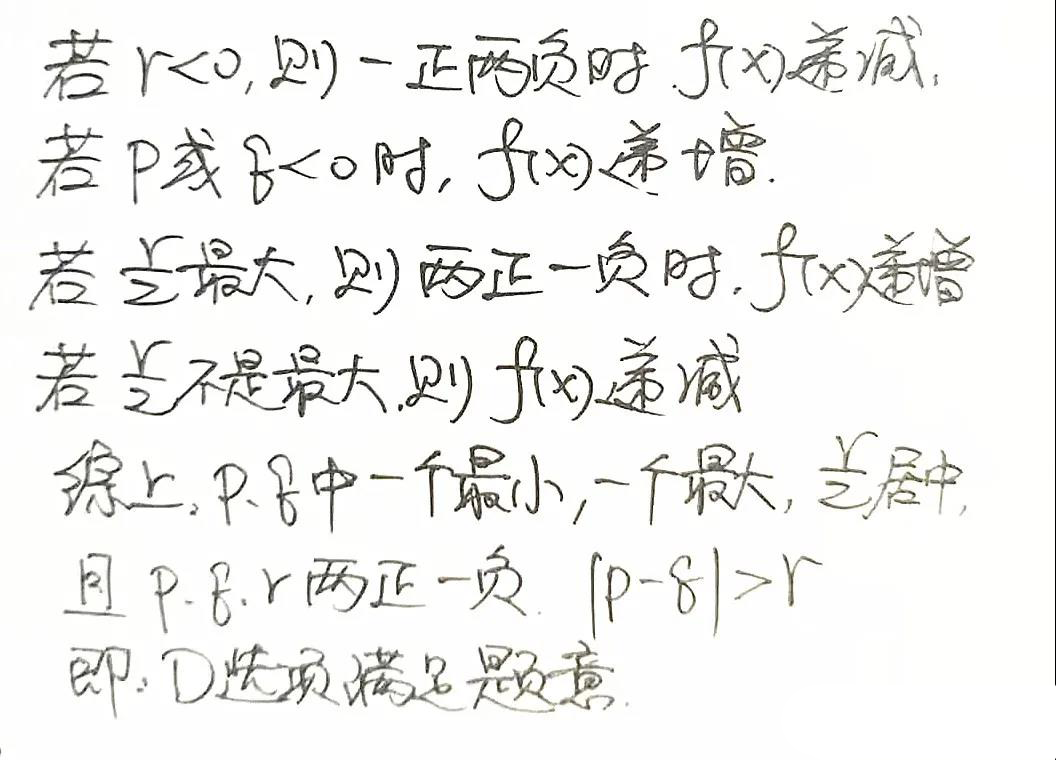 若 r<0,则一正两负时 f(x)递减,
若 p或 q<0时, f(x)递增.
若 r/2 最大,则两正一负时, f(x)递增
若 r/2 不是最大,则 f(x)递减
综上, p.q中一个最小,一个最大, r/2 居中,
且 p.q.r 两正一负. |p-q|>r
即: D选项满足题意.